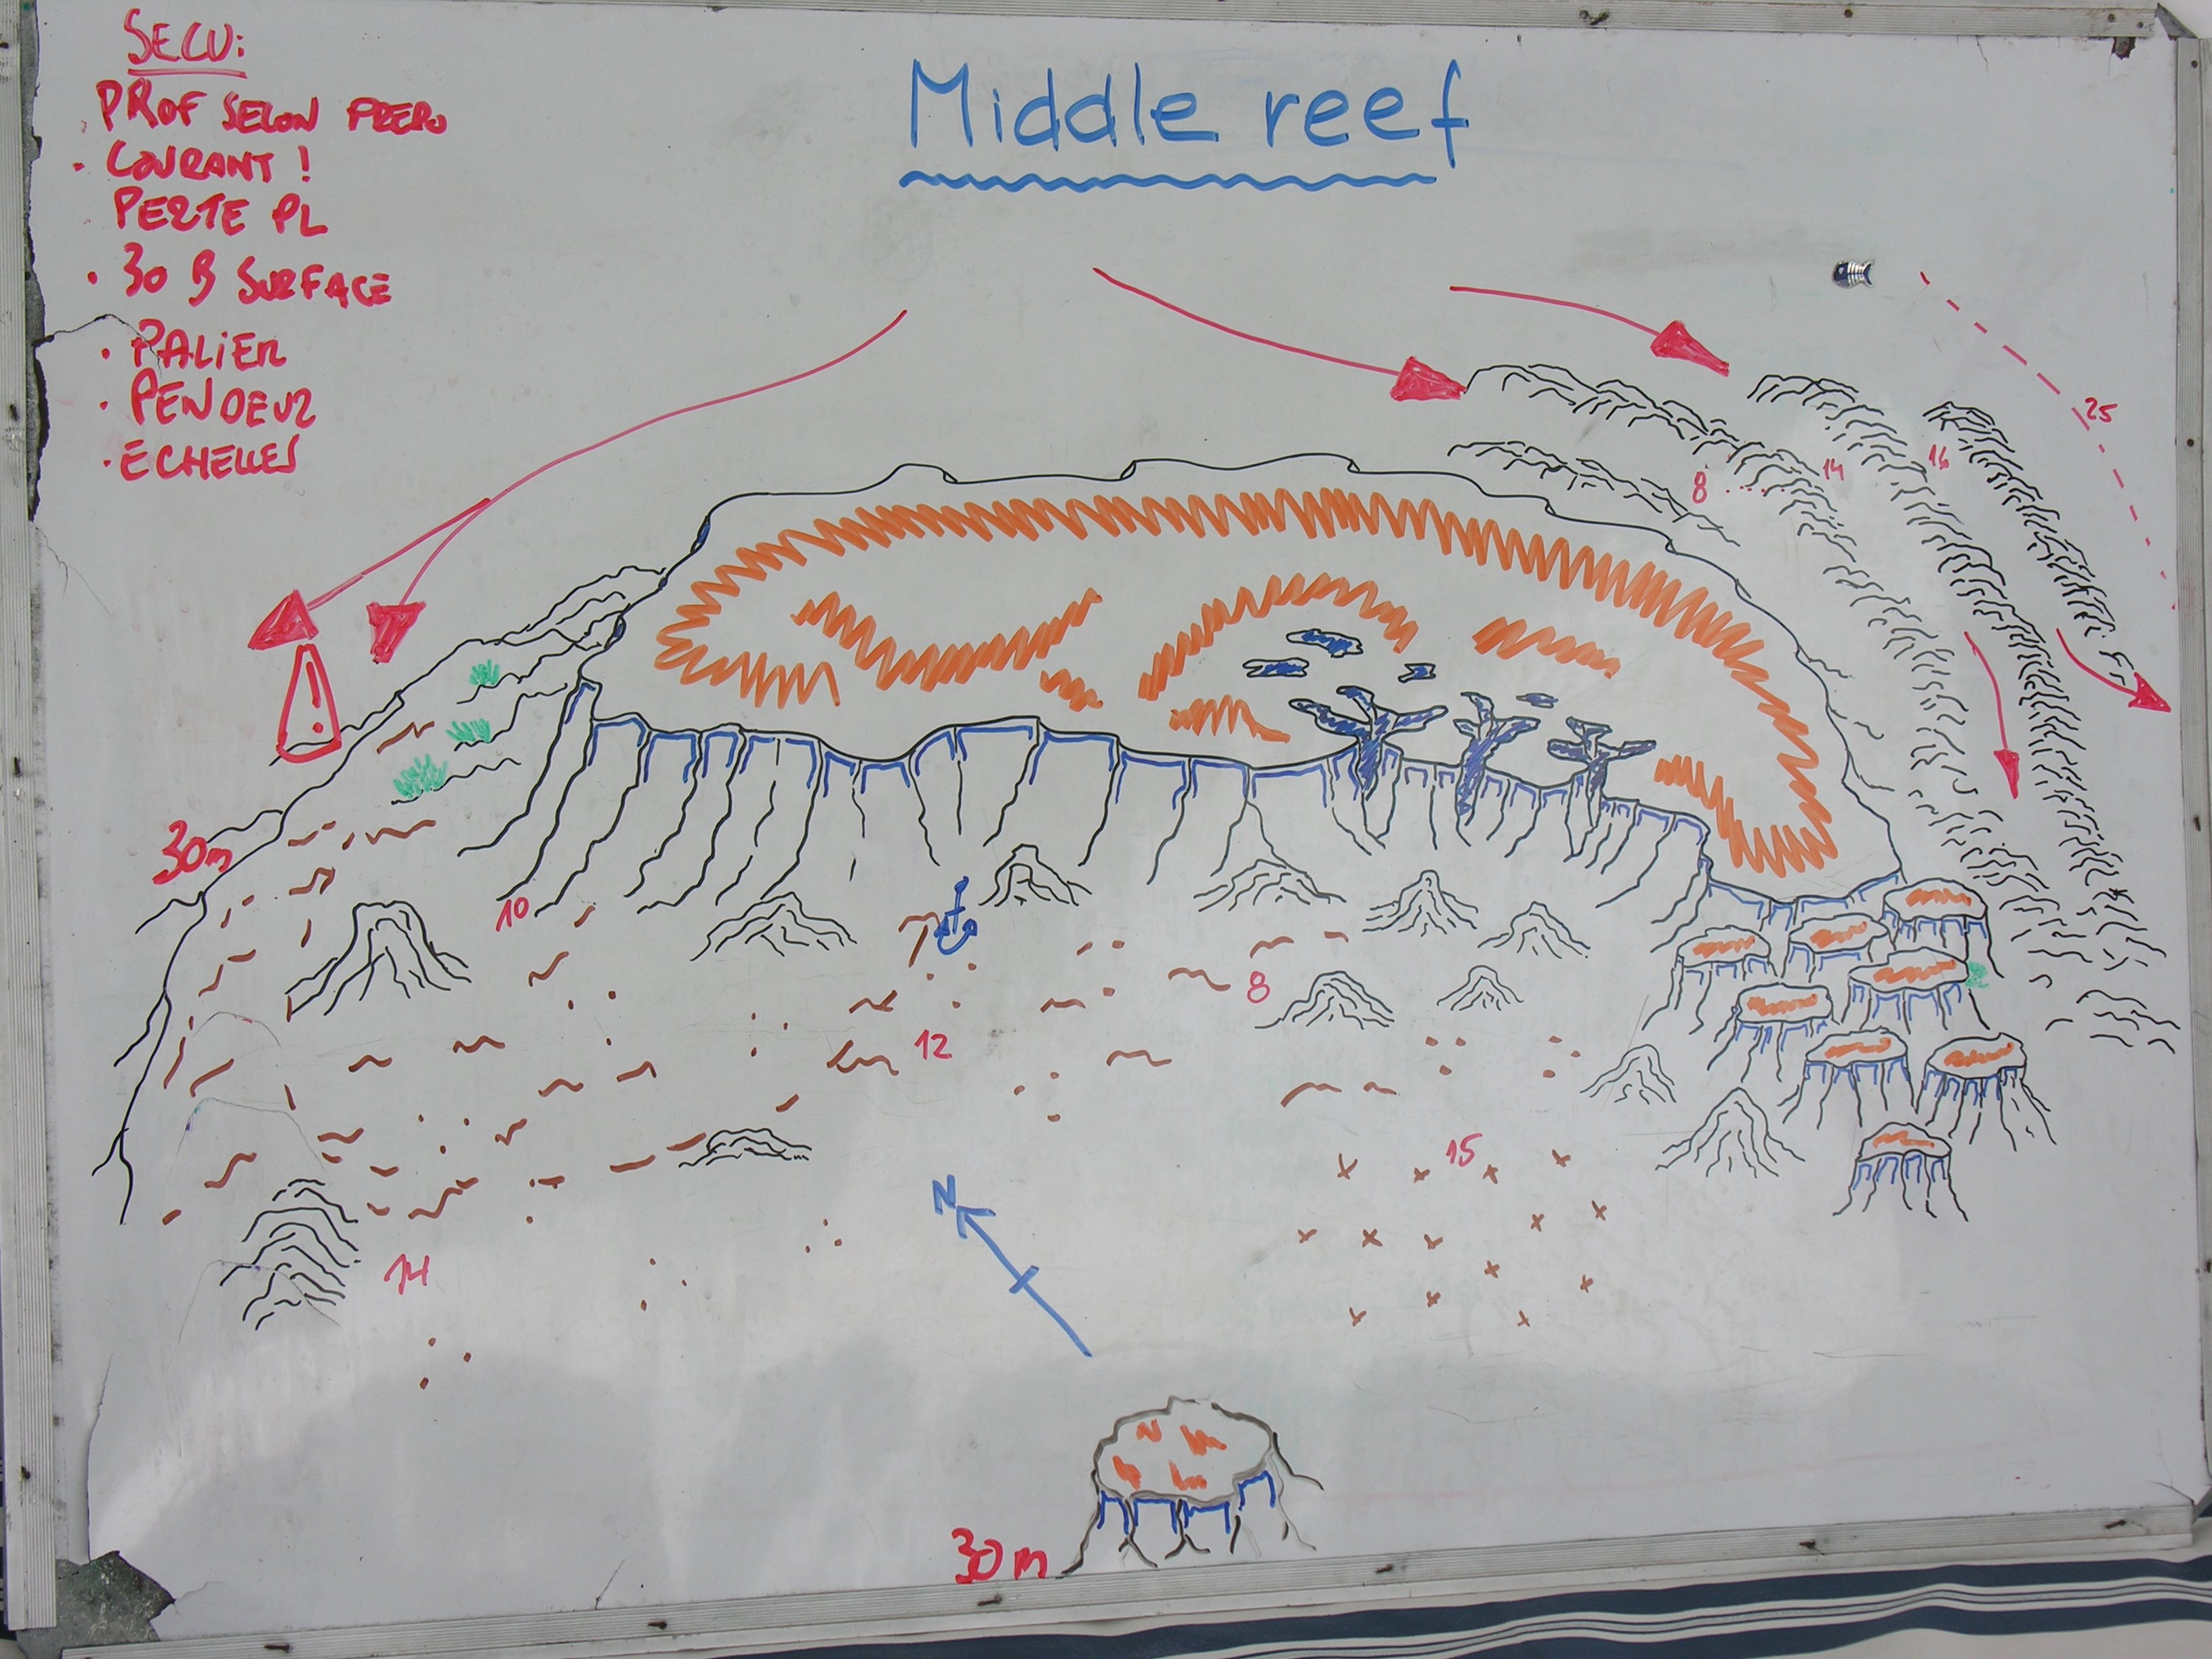 SECU:
PROF SELON PREPA
· COURANT !
PERTE PL
· 30 B SURFACE
· PALIER
· PENDEUR
· ECHELLES
Middle reef
25
16
14
8
30m
10
8
12
15
N
14
30m